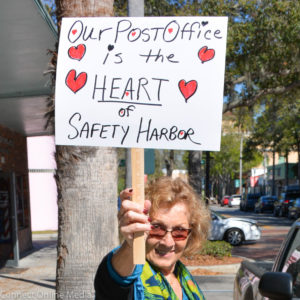 OUR POST OFFICE
is the
HEART
of
SAFETY HARBOR
Connect Online Media